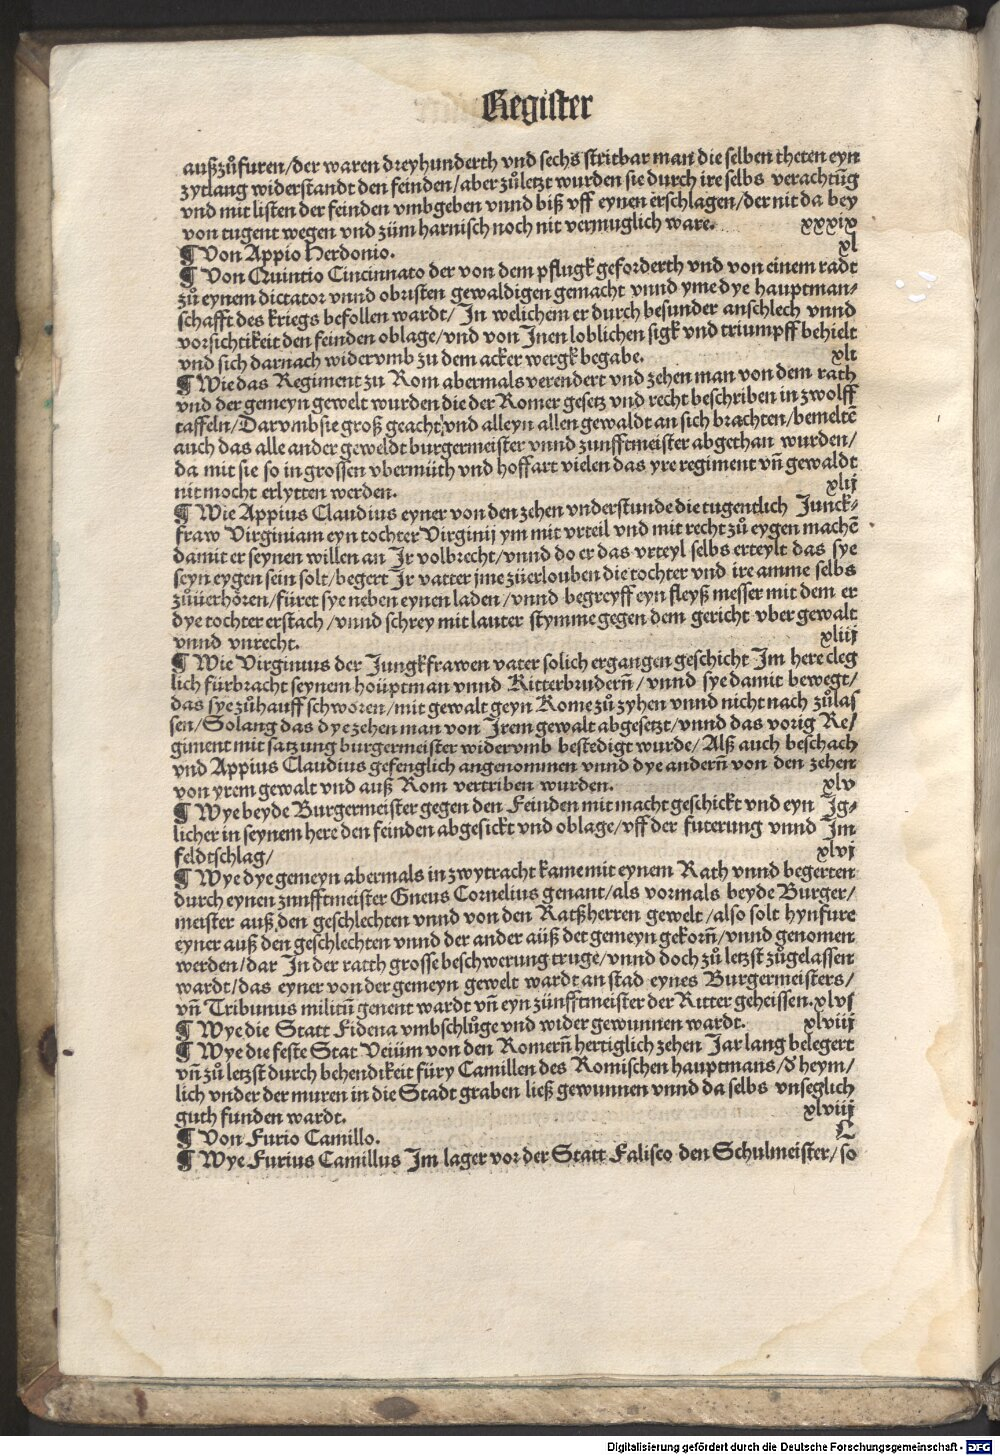 Register
außzůfuren/der waren dreyhunderth vnd sechs stritbar man die selben theten eyn
zytlang widerstandt den feinden/aber zůletzt wurden sie durch ire selbs verachtūg
vnd mit listen der feinden vmbgeben vnnd biß vff eynen erschlagen/der nit da bey
von tugent wegen vnd züm harnisch noch nit vermuglich ware. xxxix
¶ Von Appio Herdonio. xl
¶ Von Quintio Cincinnato der von dem pflugk geforderth vnd von einem radt
zů eynem dictator vnnd obristen gewaldigen gemacht vnnd yme dye hauptman⸗
schafft des kriegs befollen wardt/ In welichem er durch besunder anschlech vnnd
vorsichtikeit den feinden oblage/vnd von Jnen loblichen sigk vnd triumpff behielt
vnd sich darnach widervmb zu dem acker wergk begabe. xli
¶ Wie das Regiment zu Rom abermals verendert vnd zehen man von dem rath
vnd der gemeyn gewelt wurden die der Romer gesetz vnd recht beschriben in zwolff
taffeln/Darvmb sie groß geacht vnd alleyn allen gewaldt an sich brachten/bemeltē
auch das alle ander geweldt burgermeister vnnd zunfftmeister abgethan wurden/
da mit sie so in grossen vbermüth vnd hoffart vielen das yre regiment vn̄ gewaldt
nit mocht erlytten werden. xlij
¶ Wie Appius Claudius eyner von den zehen vnderstunde die tugentlich Junck⸗
fraw Virginiam eyn tochter Virginij ym mit vrteil vnd mit recht zů eygen machē
damit er seynen willen an Jr volbrecht/vnnd do er das vrteyl selbs erteylt das sye
seyn eygen sein solt/begert Jr vatter jme züerlouben die tochter vnd ire amme selbs
zůüerhören/füret sye neben eynen laden/vnnd begreyff eyn fleyß messer mit dem er
dye tochter erstach/vnnd schrey mit lauter stymme gegen dem gericht vber gewalt
vnnd vnrecht. xliij
¶ Wie Virginius der Jungkfrawen vater solich ergangen geschicht Jm here cleg
lich fürbracht seynem hoüptman vnnd Ritterbrudern̄/vnnd sye damit bewegt/
das sye zůhauff schworen/mit gewalt geyn Rome zů zyhen vnnd nicht nach zůlas
sen/Solang das dye zehen man von Jrem gewalt abgesetzt/vnnd das vorig Re/
giment mit satzung burgermeister widervmb bestedigt wurde/Alß auch beschach
vnd Appius Claudius gefenglich angenommen vnnd dye andern̄ von den zehen
von yrem gewalt vnd auß Rom vertriben wurden. xlv
¶ Wye beyde Burgermeister gegen den Feinden mit macht geschickt vnd eyn Jg⸗
licher in seynem here den feinden abgesickt vnd oblage/vff der futerung vnnd Jm
feldtschlag/ xlvj
¶ Wye dye gemeyn abermals in zwytracht kame mit eynem Rath vnnd begerten
durch eynen zunfftmeister Gneus Cornelius genant/als vormals beyde Burger/
meister auß den geschlechten vnnd von den Ratßherren gewelt/also solt hynfure
eyner auß den geschlechten vnnd der ander aüß der gemeyn gekorn̄/vnnd genomen
werden/dar Jn der ratth grosse beschwerung truge/vnnd doch zů letzst zůgelassen
wardt/das eyner von der gemeyn gewelt wardt an stad eynes Burgermeisters/
vn̄ Tribunus militū genent wardt vn̄ eyn zünfftmeister der Ritter geheissen. xlvj
¶ Wye die Statt Fidena vmbschlůge vnd wider gewunnen wardt. xlviij
¶ Wye die feste Stat Veiüm von den Romern̄ hertiglich zehen Jar lang belegert
vn̄ zů letzst durch behendikeit füry Camillen des Romischen hauptmans/d̄ heym/
lich vnder der muren in die Stadt graben ließ gewunnen vnnd da selbs vnseglich
guth funden wardt. xlviij
¶ Von Furio Camillo. L
¶ Wye Furius Camillus Jm lager vor der Statt Falisco den Schulmeister/so
Digitalisierung gefördert durch die Deutsche Forschungsgemeinschaft - DFG